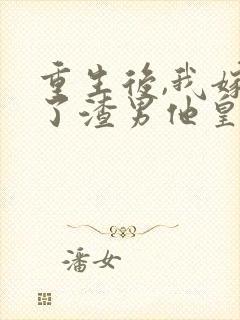 重生後,我嫁
了渣男他皇
潘女